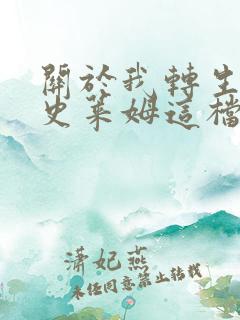 關於我轉生
史萊姆這檔
瀟妃燕
未經同意禁止轉載